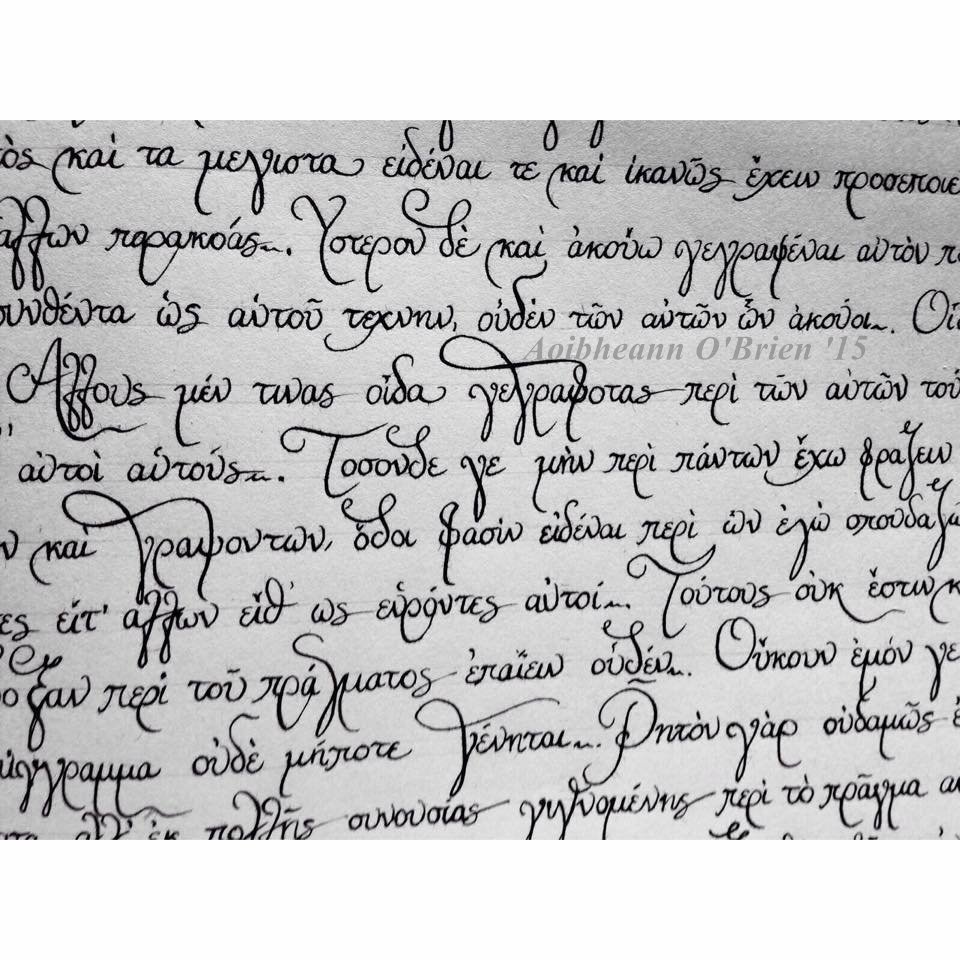 καὶ τα μεγιστα εἰδέναι τε καὶ ἱκανῶς ἔχειν προσεποιε
ἄλλων παρακοάς~. Ὑστερον δὲ καὶ ἀκούω γεγραφέναι αὐτὸν π
συνθέντα ὡς αὑτοῦ τεχνην, οὐδὲν τῶν αὐτῶν ὧν ἀκούοι~. Οἶ
Aoibheann O'Brien '15
Ἀλλους μέν τινας οἶδα γεγραφοτας περὶ τῶν αὐτῶν τού
αὐτοὶ αὑτούς~. Τοσονδε γε μὴν περὶ πάντων ἔχω φραζειν
καὶ γραψοντων, ὅσοι φασὶν εἰδέναι περὶ ὧν ἐγὼ σπουδαζω
τες εἴτ' ἀλλων εἴθ' ὡς εὑρόντες αὐτοί~. Τούτους οὐκ ἔστιν κ
δοξαν περὶ τοῦ πράγματος ἐπαΐειν οὐδέν~. Οὔκουν ἐμόν γε
σύγγραμμα οὐδὲ μήποτε γένηται~. Ῥητὸν γὰρ οὐδαμῶς ἐ
ἀλλ' ἐκ πολλῆς συνουσίας γιγνομένης περὶ τὸ πρᾶγμα αὐ